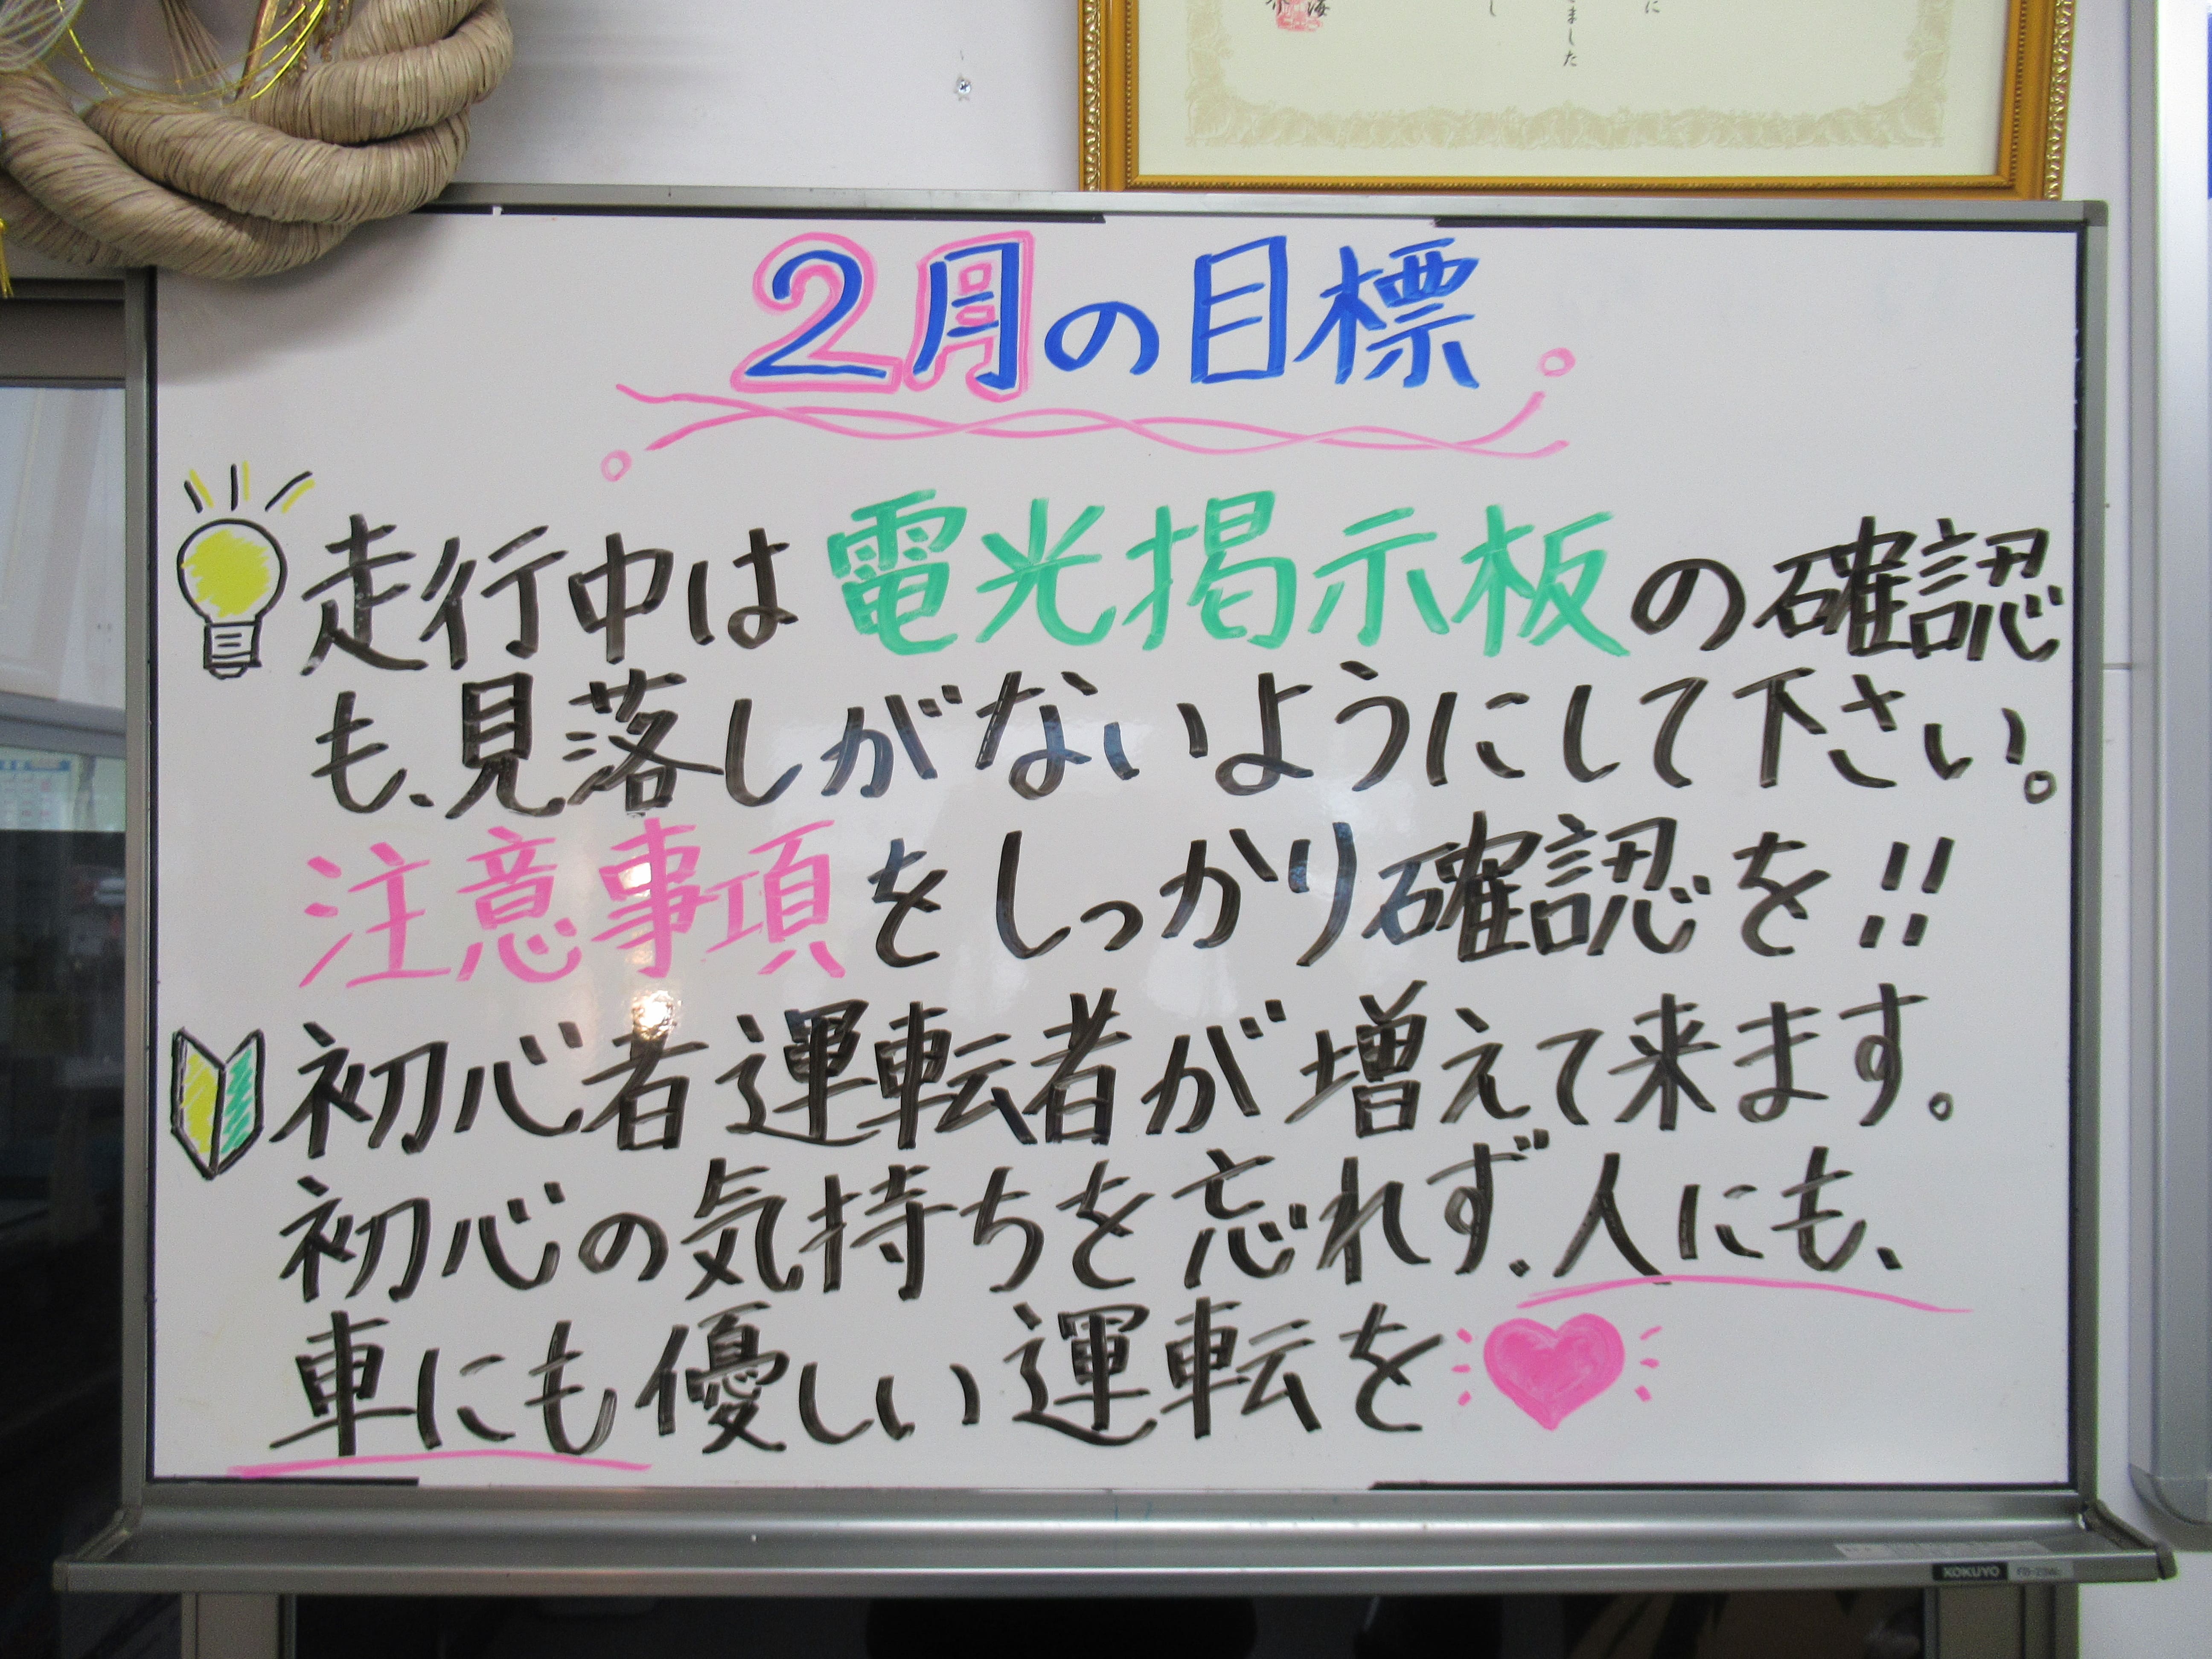 に
ました
し
海
2月の目標
走行中は電光掲示板の確認
も、見落しがないようにして下さい。
注意事項をしっかり確認を!!
初心者運転者が増えて来ます。
初心の気持ちを忘れず、人にも、
車にも優しい運転を
KOKUYO